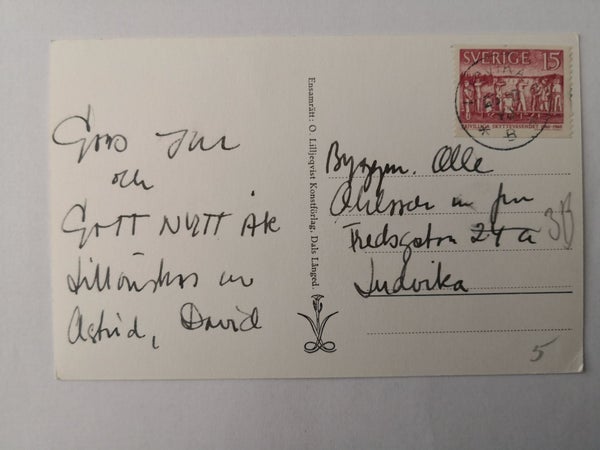 God Jul
och
GOTT NYTT ÅR
tillönskas av
Astrid, David
Ensamrätt: O. Lilljeqvist Konstförlag, Dals Långed.
SVERIGE 15
FRIVILLIGA SKYTTEVÄSENDET 1860-1960
B
Byggm. Olle
Ohlsson m fru
Fredsgatan 24 a
Ludvika
3B
5